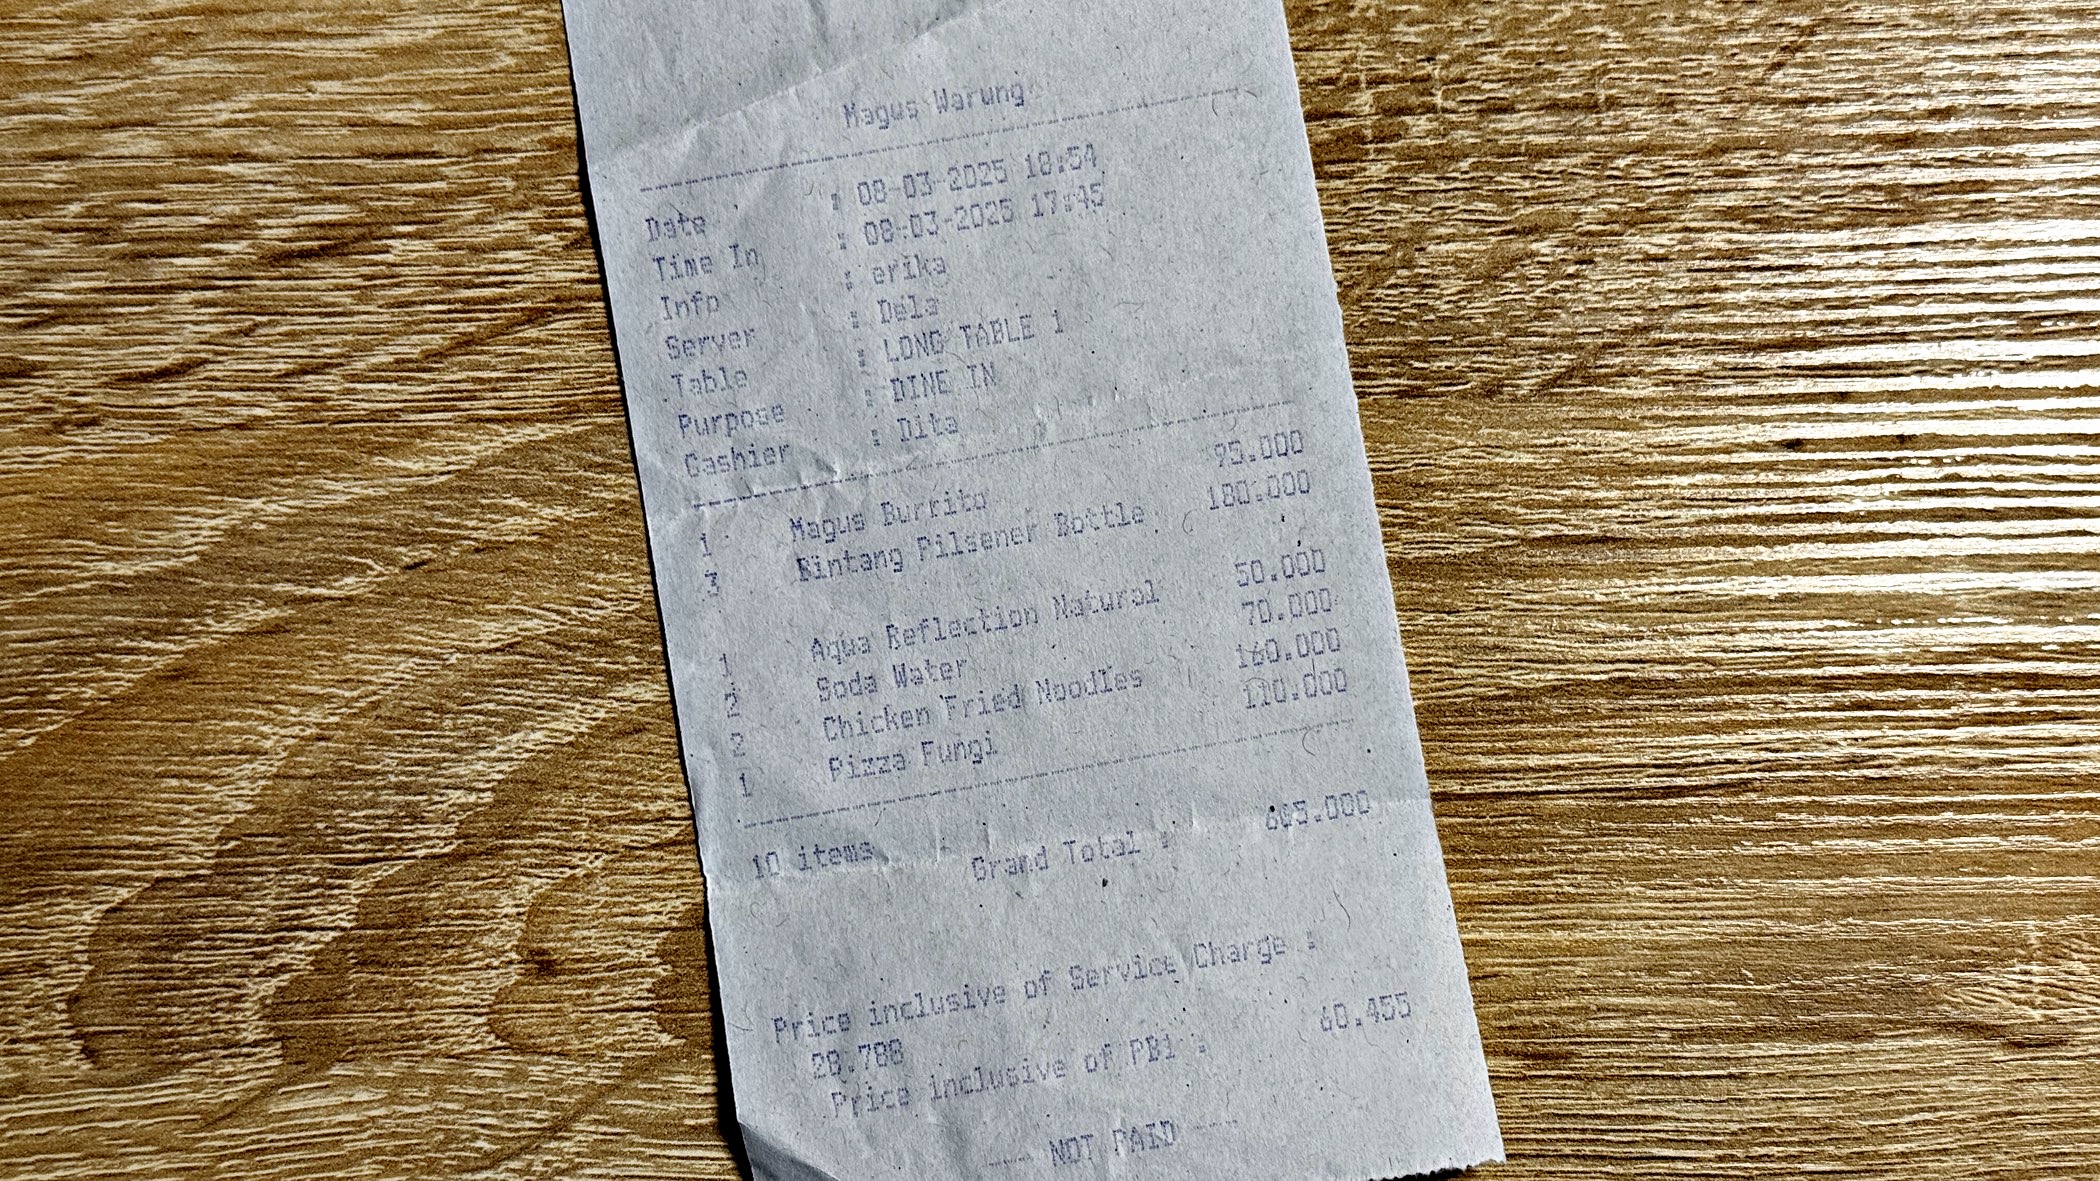 Magus Warung
Date : 08-03-2025 18:54
Time In : 08-03-2025 17:45
Info : erika
Server : Dela
Table : LONG TABLE 1
Purpose : DINE IN
Cashier : Dita
1 Magus Burrito 95.000
3 Bintang Pilsener Bottle 180.000
1 Aqua Reflection Natural 50.000
2 Soda Water 70.000
2 Chicken Fried Noodles 160.000
1 Pizza Fungi 110.000
10 items
Grand Total : 665.000
Price inclusive of Service Charge :
28.788
Price inclusive of PB1 : 60.455
--- NOT PAID ---